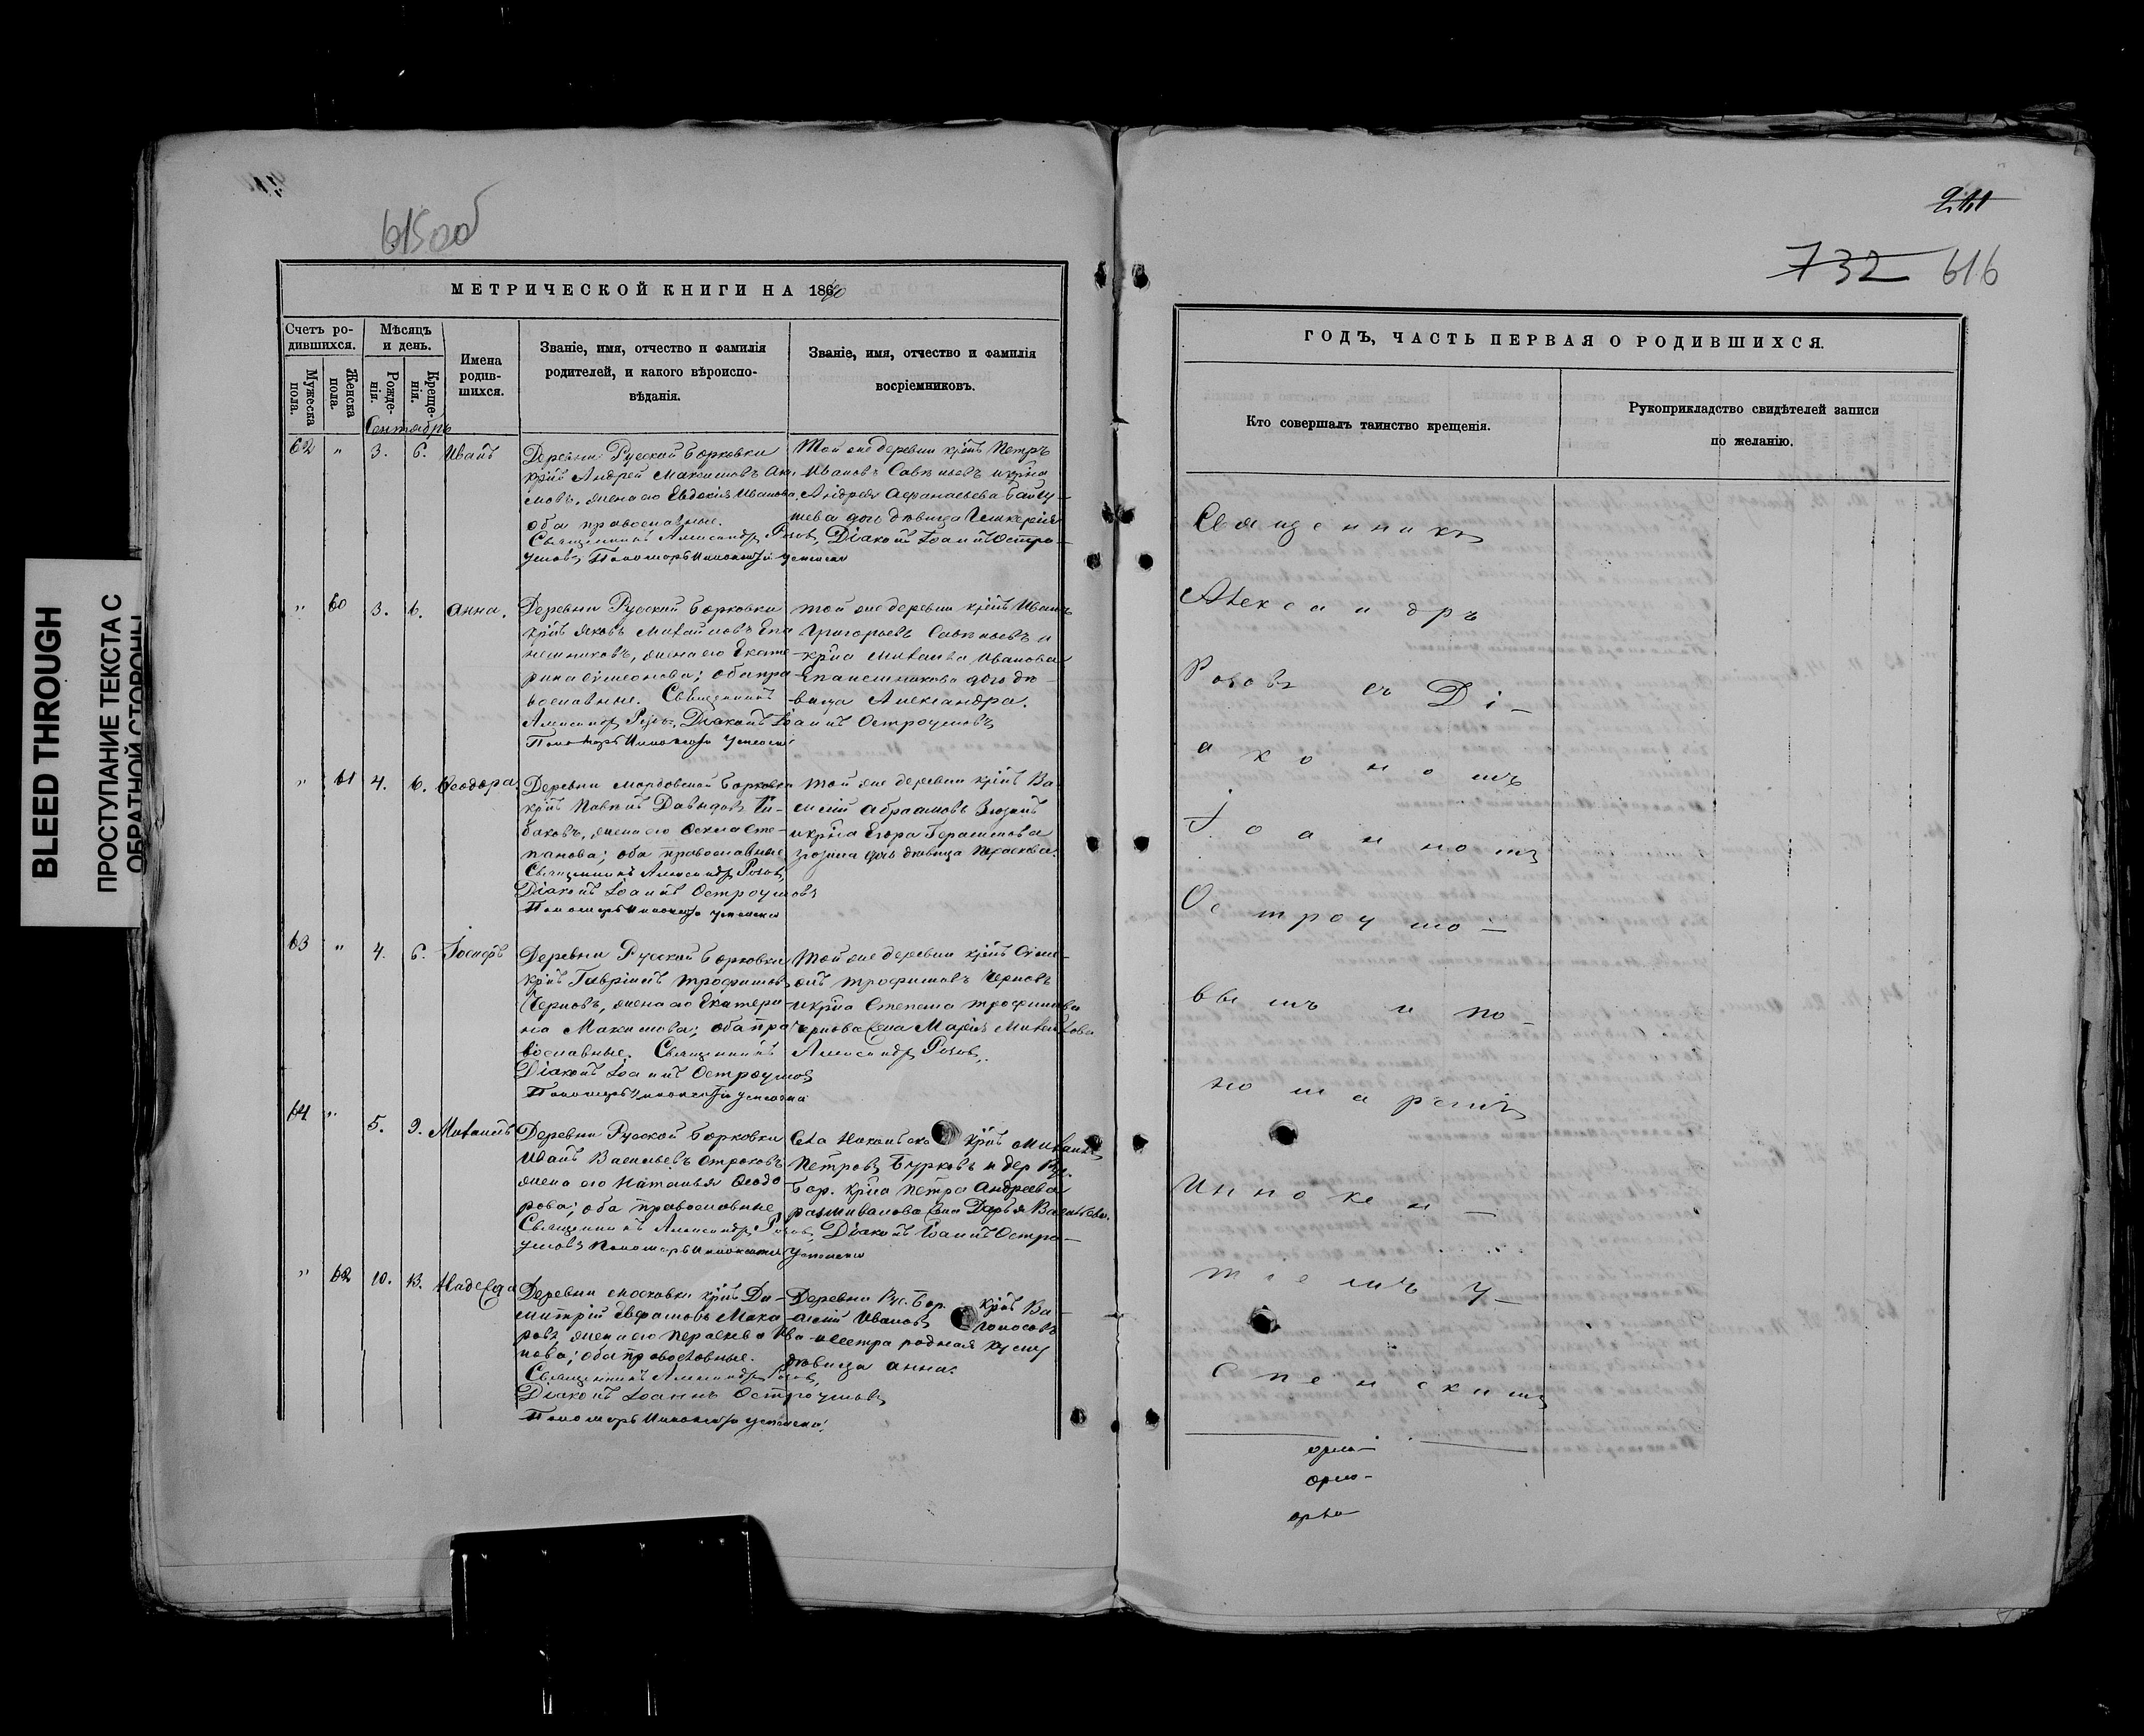 BLEED THROUGH
ПРОСТУПАНИЕ ТЕКСТА С
ОБРАТНОЙ СТОРОНЫ
615об
МЕТРИЧЕСКОЙ КНИГИ НА 186
Счетъ ро-
дившихся.
Мужеска
пола.
Женска
пола.
Мѣсяцъ
и день.
Рожде-
нія.
Креще-
нія.
Имена
родив-
шихся.
Званіе, имя, отчество и фамилія
родителей, и какого вѣроиспо-
вѣданія.
Званіе, имя, отчество и фамилія
восріемниковъ.
Сентябрь
62 " 3. 6. Иванъ
Деревни Русской Борковки
крнъ Андрей Максимовъ
мовъ, жена его Евдокія Иванова,
оба православные.
Священникъ Александръ Розовъ, Діаконъ Іоаннъ Остро-
умовъ, Пономарь Иннокентій Успенскій
Той же деревни крнъ Петръ
Ивановъ Савельевъ и крна
Андрея Афанасьева
дочь дѣвица
" 60 3. 6. Анна.
Деревни Русской Борковки
крнъ Яковъ Михайловъ Епа
нешниковъ, жена его Екате-
рина Симеонова; оба пра-
вославные. Священникъ
Александръ Розовъ, Діаконъ Іоаннъ Остроумовъ
Пономарь Иннокентій Успенскій
той же деревни крнъ Иванъ
Григорьевъ Савельевъ и
крна Михаила Иванова
Епанешникова дочь дѣ-
вица Александра.
" 61 4. 6. Ѳеодора
Деревни Мордовской Борковки
крнъ Павелъ Давыдовъ
баковъ, жена его Ѳекла Сте-
панова; оба православные
Священникъ Александръ Розовъ,
Діаконъ Іоаннъ Остроумовъ
Пономарь Иннокентій Успенскій
Той же деревни крнъ Ва-
силій Абрамовъ Зюзинъ
и крна Егора Герасимова
Зюзина дочь дѣвица Параскева.
63 " 4. 6. Іосифъ
Деревни Русской Борковки
крнъ Гавріилъ Трофимовъ
Черновъ, жена его Екатери-
на Максимова; оба пра
вославные. Священникъ Александръ Розовъ,
Діаконъ Іоаннъ Остроумовъ
Пономарь Иннокентій Успенскій
Той же деревни крнъ Симе-
онъ Трофимовъ Черновъ
и крна Степана Трофимова
Чернова жена Марія Михайлова
64 " 5. 9. Михаилъ
Деревни Русской Борковки
Иванъ Васильевъ Строковъ
жена его Наталья Ѳеодо
рова; оба православные
Священникъ Александръ Розовъ, Діаконъ Іоаннъ Остро-
умовъ Пономарь Иннокентій Успенскій
Села крнъ Михаилъ
Петровъ Бурковъ и дер. Рус.
Бор. крна Петра Андреева
жена Дарья Васильева.
" 62 10. 13. Надежда
Деревни Московки крнъ Ди-
митрій Макаровъ
жена его Параскева Ива
нова; оба православные.
Священникъ Александръ Розовъ,
Діаконъ Іоаннъ Остроумовъ
Пономарь Иннокентій Успенскій
Деревни Рус. Бор. крнъ Ва-
силій Ивановъ Голосовъ
и сестра родная ему
дѣвица Анна.
732 616
ГОДЪ, ЧАСТЬ ПЕРВАЯ О РОДИВШИХСЯ.
Кто совершалъ таинство крещенія.
Рукоприкладство свидѣтелей записи
по желанію.
Священникъ
Александръ
Розовъ съ Ді-
акономъ
Іоанномъ
Остроумо-
вымъ и по-
номаремъ
Иннокен-
тіемъ У-
спенскимъ